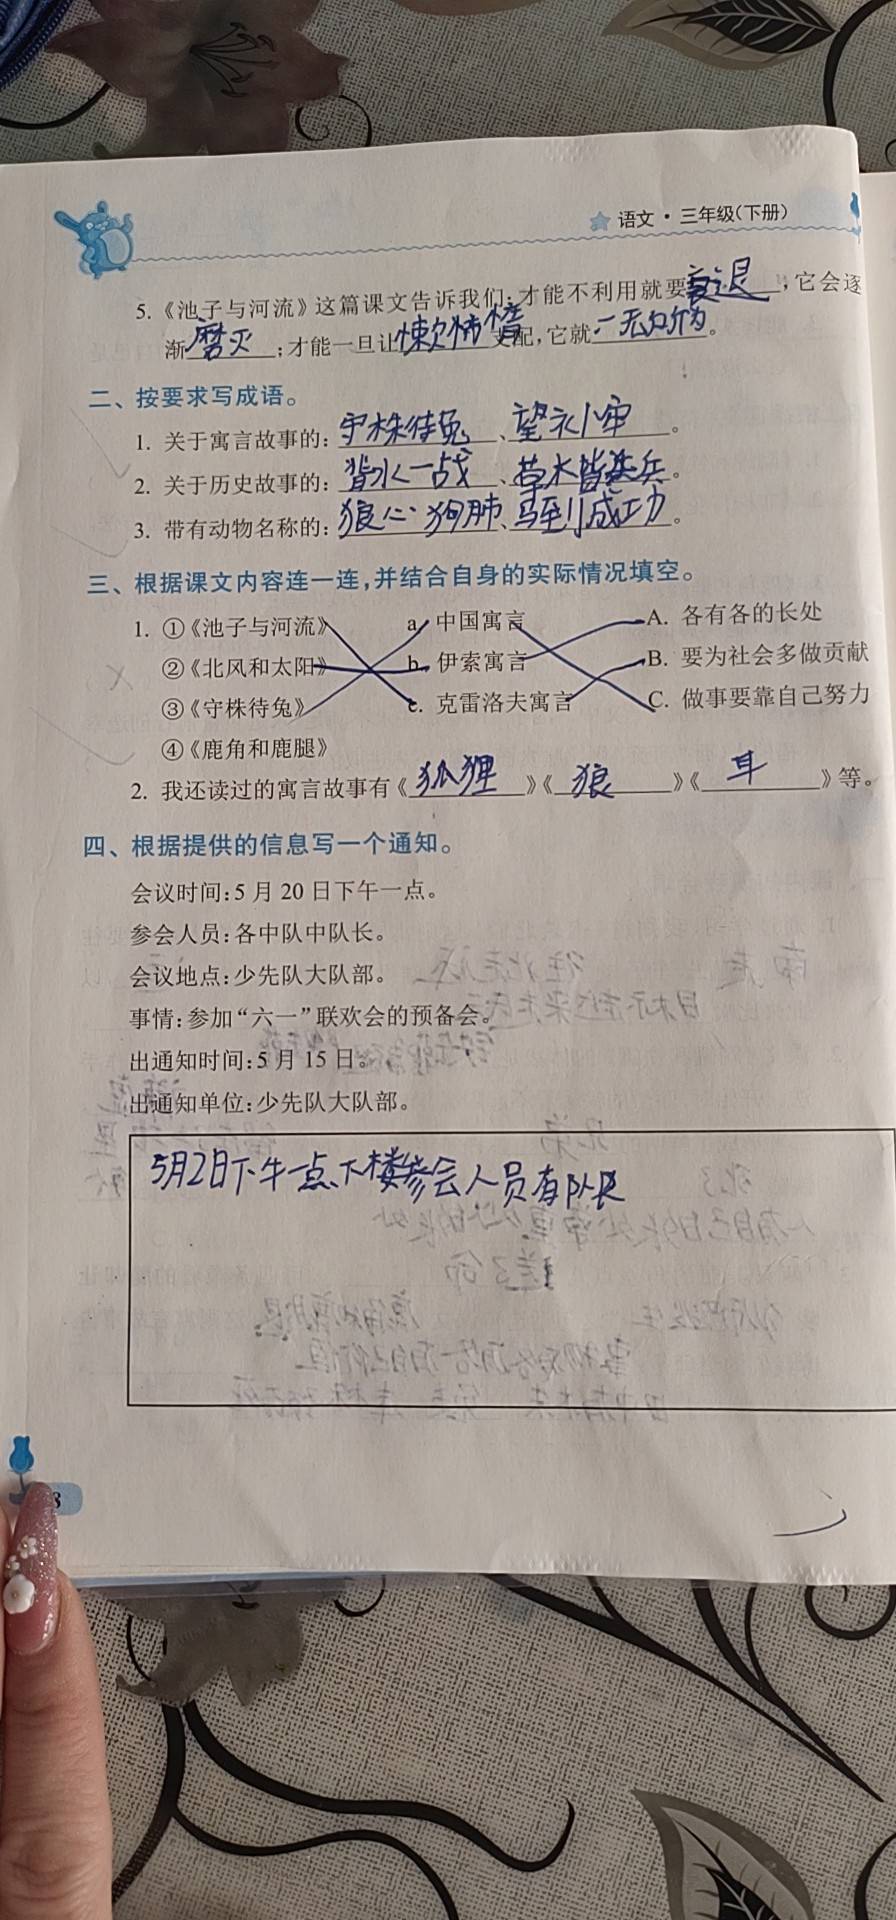 语文·三年级(下册)
5.《池子与河流》这篇课文告诉我们:才能不利用就要衰退,它会逐
渐磨灭;才能一旦让懒惰支配,它就一无所为。
二、按要求写成语。
1. 关于寓言故事的:守株待兔、
2. 关于历史故事的:背水一战、草木皆兵。
3. 带有动物名称的:狼心狗肺、马到成功。
三、根据课文内容连一连,并结合自身的实际情况填空。
1. ①《池子与河流》 a. 中国寓言 A. 各有各的长处
②《北风和太阳》 b. 伊索寓言 B. 要为社会多做贡献
③《守株待兔》 c. 克雷洛夫寓言 C. 做事要靠自己努力
④《鹿角和鹿腿》
2. 我还读过的寓言故事有《狐狸》《狼》《》等。
四、根据提供的信息写一个通知。
会议时间:5月20日下午一点。
参会人员:各中队中队长。
会议地点:少先队大队部。
事情:参加“六一”联欢会的预备会。
出通知时间:5月15日。
出通知单位:少先队大队部。
5月2日下午一点下楼参会人员有队长
8